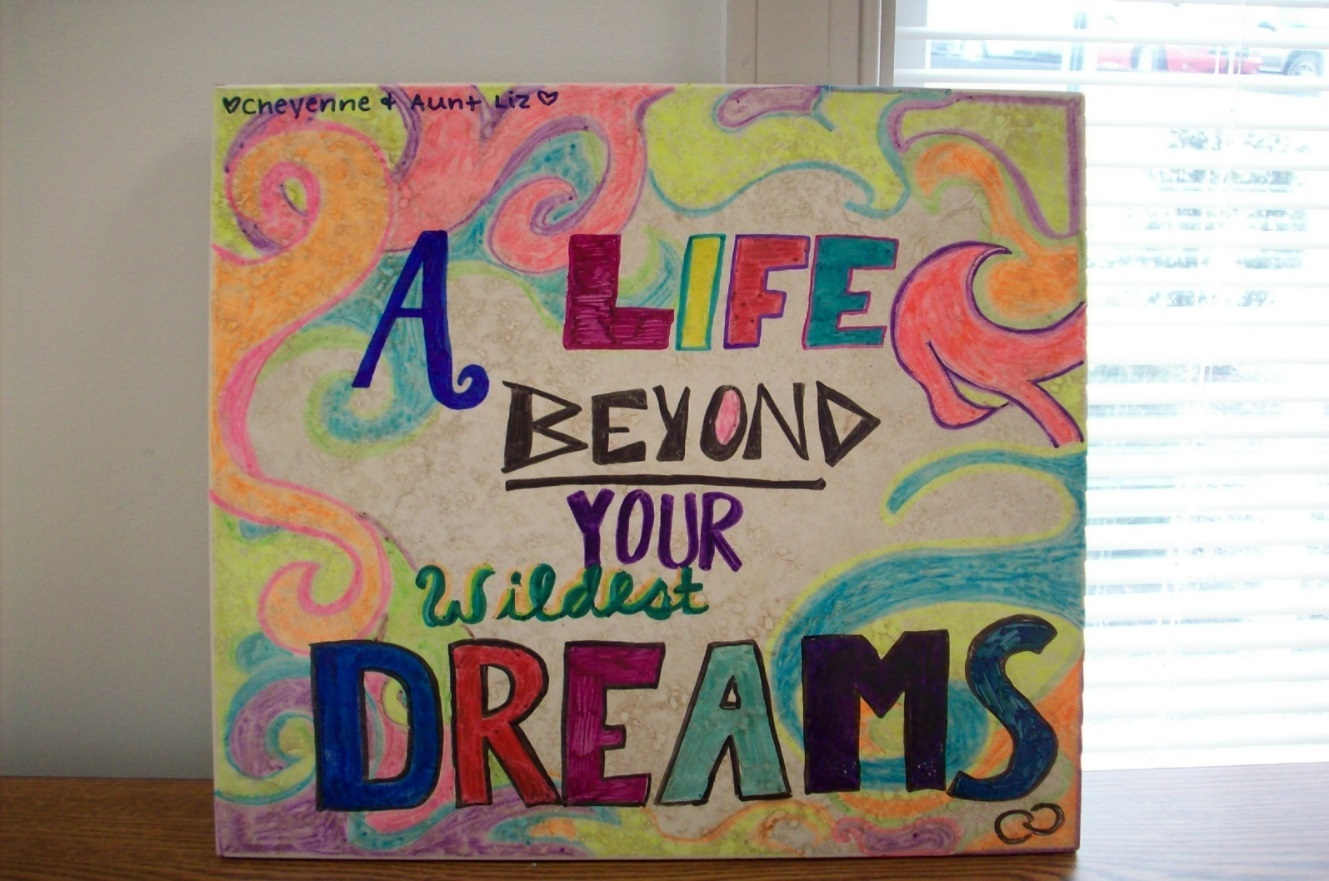 ♥Cheyenne + Aunt Liz♡
A LIFE
BEYOND
YOUR
Wildest
DREAMS